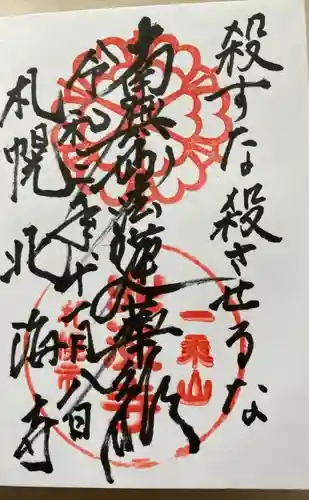 殺すな殺させるな
南無妙法蓮華経
令和三年十一月八日
札幌 北海寺
一乗山
札幌市